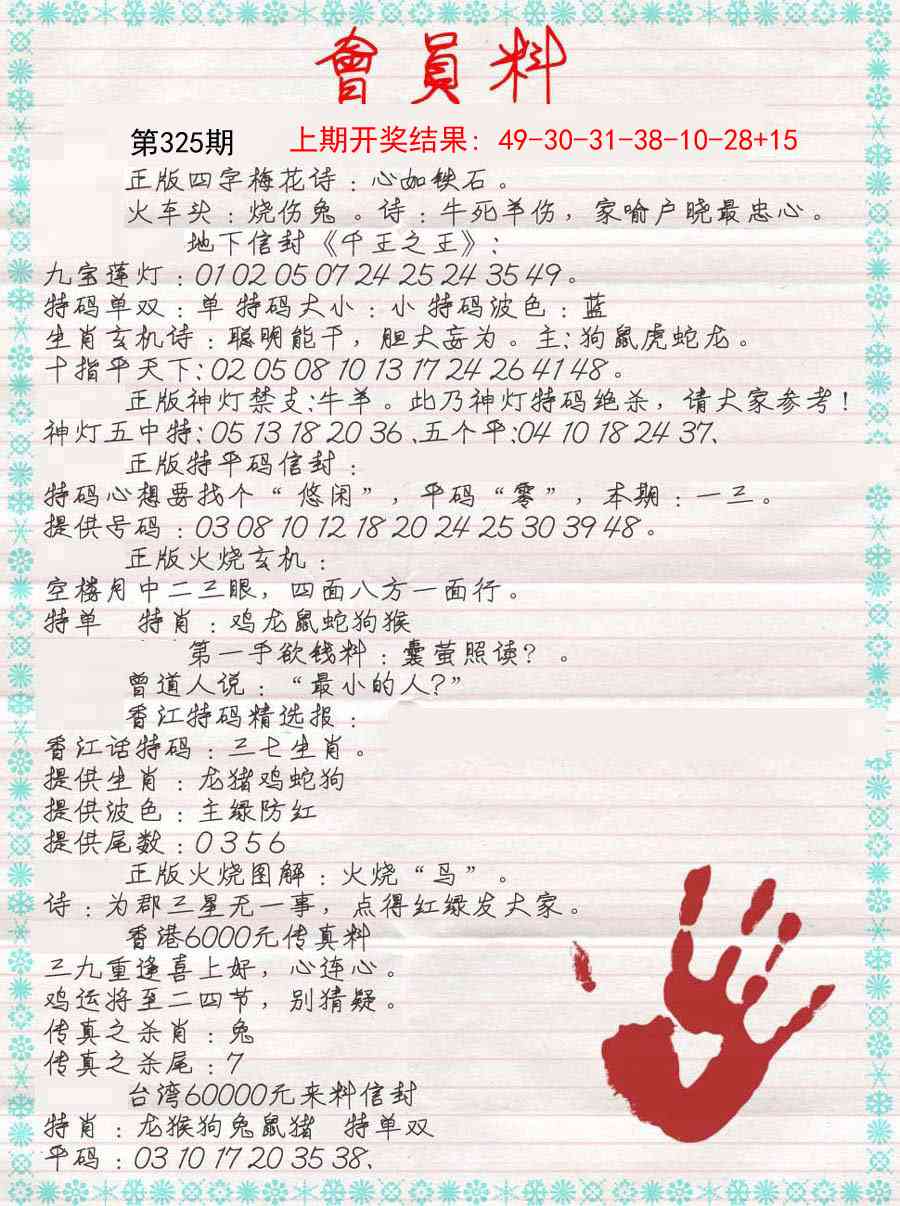 會員料
第325期 上期开奖结果：49-30-31-38-10-28+15
正版四字梅花诗：心如铁石。
火车头：烧伤兔。诗：牛死羊伤，家喻户晓最忠心。
地下信封《千王之王》：
九宝莲灯：01 02 05 07 24 25 24 35 49。
特码单双：单 特码大小：小 特码波色：蓝
生肖玄机诗：聪明能干，胆大妄为。主：狗鼠虎蛇龙。
十指平天下：02 05 08 10 13 17 24 26 41 48。
正版神灯禁支：牛羊。此乃神灯特码绝杀，请大家参考！
神灯五中特：05 13 18 20 36、五个平：04 10 18 24 37、
正版特平码信封：
特码心想要找个“悠闲”，平码“零”，本期：一三。
提供号码：03 08 10 12 18 20 24 25 30 39 48。
正版火烧玄机：
空楼月中二三眼，四面八方一面行。
特单 特肖：鸡龙鼠蛇狗猴
第一手欲钱料：囊萤照读？。
曾道人说：“最小的人？”
香江特码精选报：
香江话特码：三七生肖。
提供生肖：龙猪鸡蛇狗
提供波色：主绿防红
提供尾数：0 3 5 6
正版火烧图解：火烧“鸟”。
诗：为郡三星无一事，点得红绿发大家。
香港6000元传真料
三九重逢喜上好，心连心。
鸡运将至二四节，别猜疑。
传真之杀肖：兔
传真之杀尾：7
台湾60000元来料信封
特肖：龙猴狗兔鼠猪 特单双
平码：03 10 17 20 35 38、